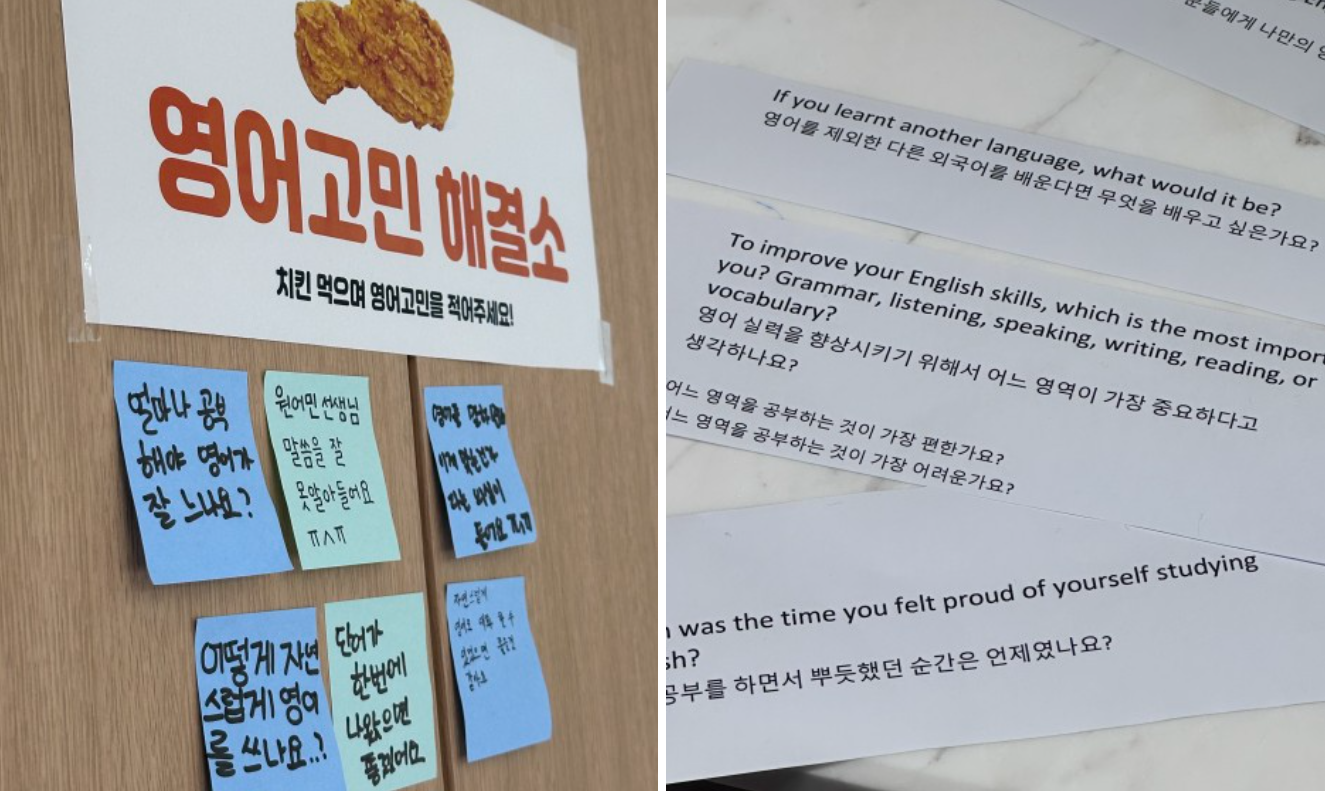 영어고민 해결소
치킨 먹으며 영어고민을 적어주세요!
얼마나 공부
해야 영어가
잘 느나요?
원어민 선생님
말씀을 잘
못알아들어요
ㅠㅅㅠ
영어를
이게 맞는건가
다른
들어요 ㅠㅠ
어떻게 자연
스럽게 영어
를 쓰나요..?
단어가
한번에
나왔으면
좋겠어요
자연스럽게
영어로 대화 할 수
있었으면
같아요
문들에게 나만의 영
If you learnt another language, what would it be?
영어를 제외한 다른 외국어를 배운다면 무엇을 배우고 싶은가요?
To improve your English skills, which is the most impor
you? Grammar, listening, speaking, writing, reading, or
vocabulary?
영어 실력을 향상시키기 위해서 어느 영역이 가장 중요하다고
생각하나요?
어느 영역을 공부하는 것이 가장 편한가요?
어느 영역을 공부하는 것이 가장 어려운가요?
was the time you felt proud of yourself studying
sh?
공부를 하면서 뿌듯했던 순간은 언제였나요?